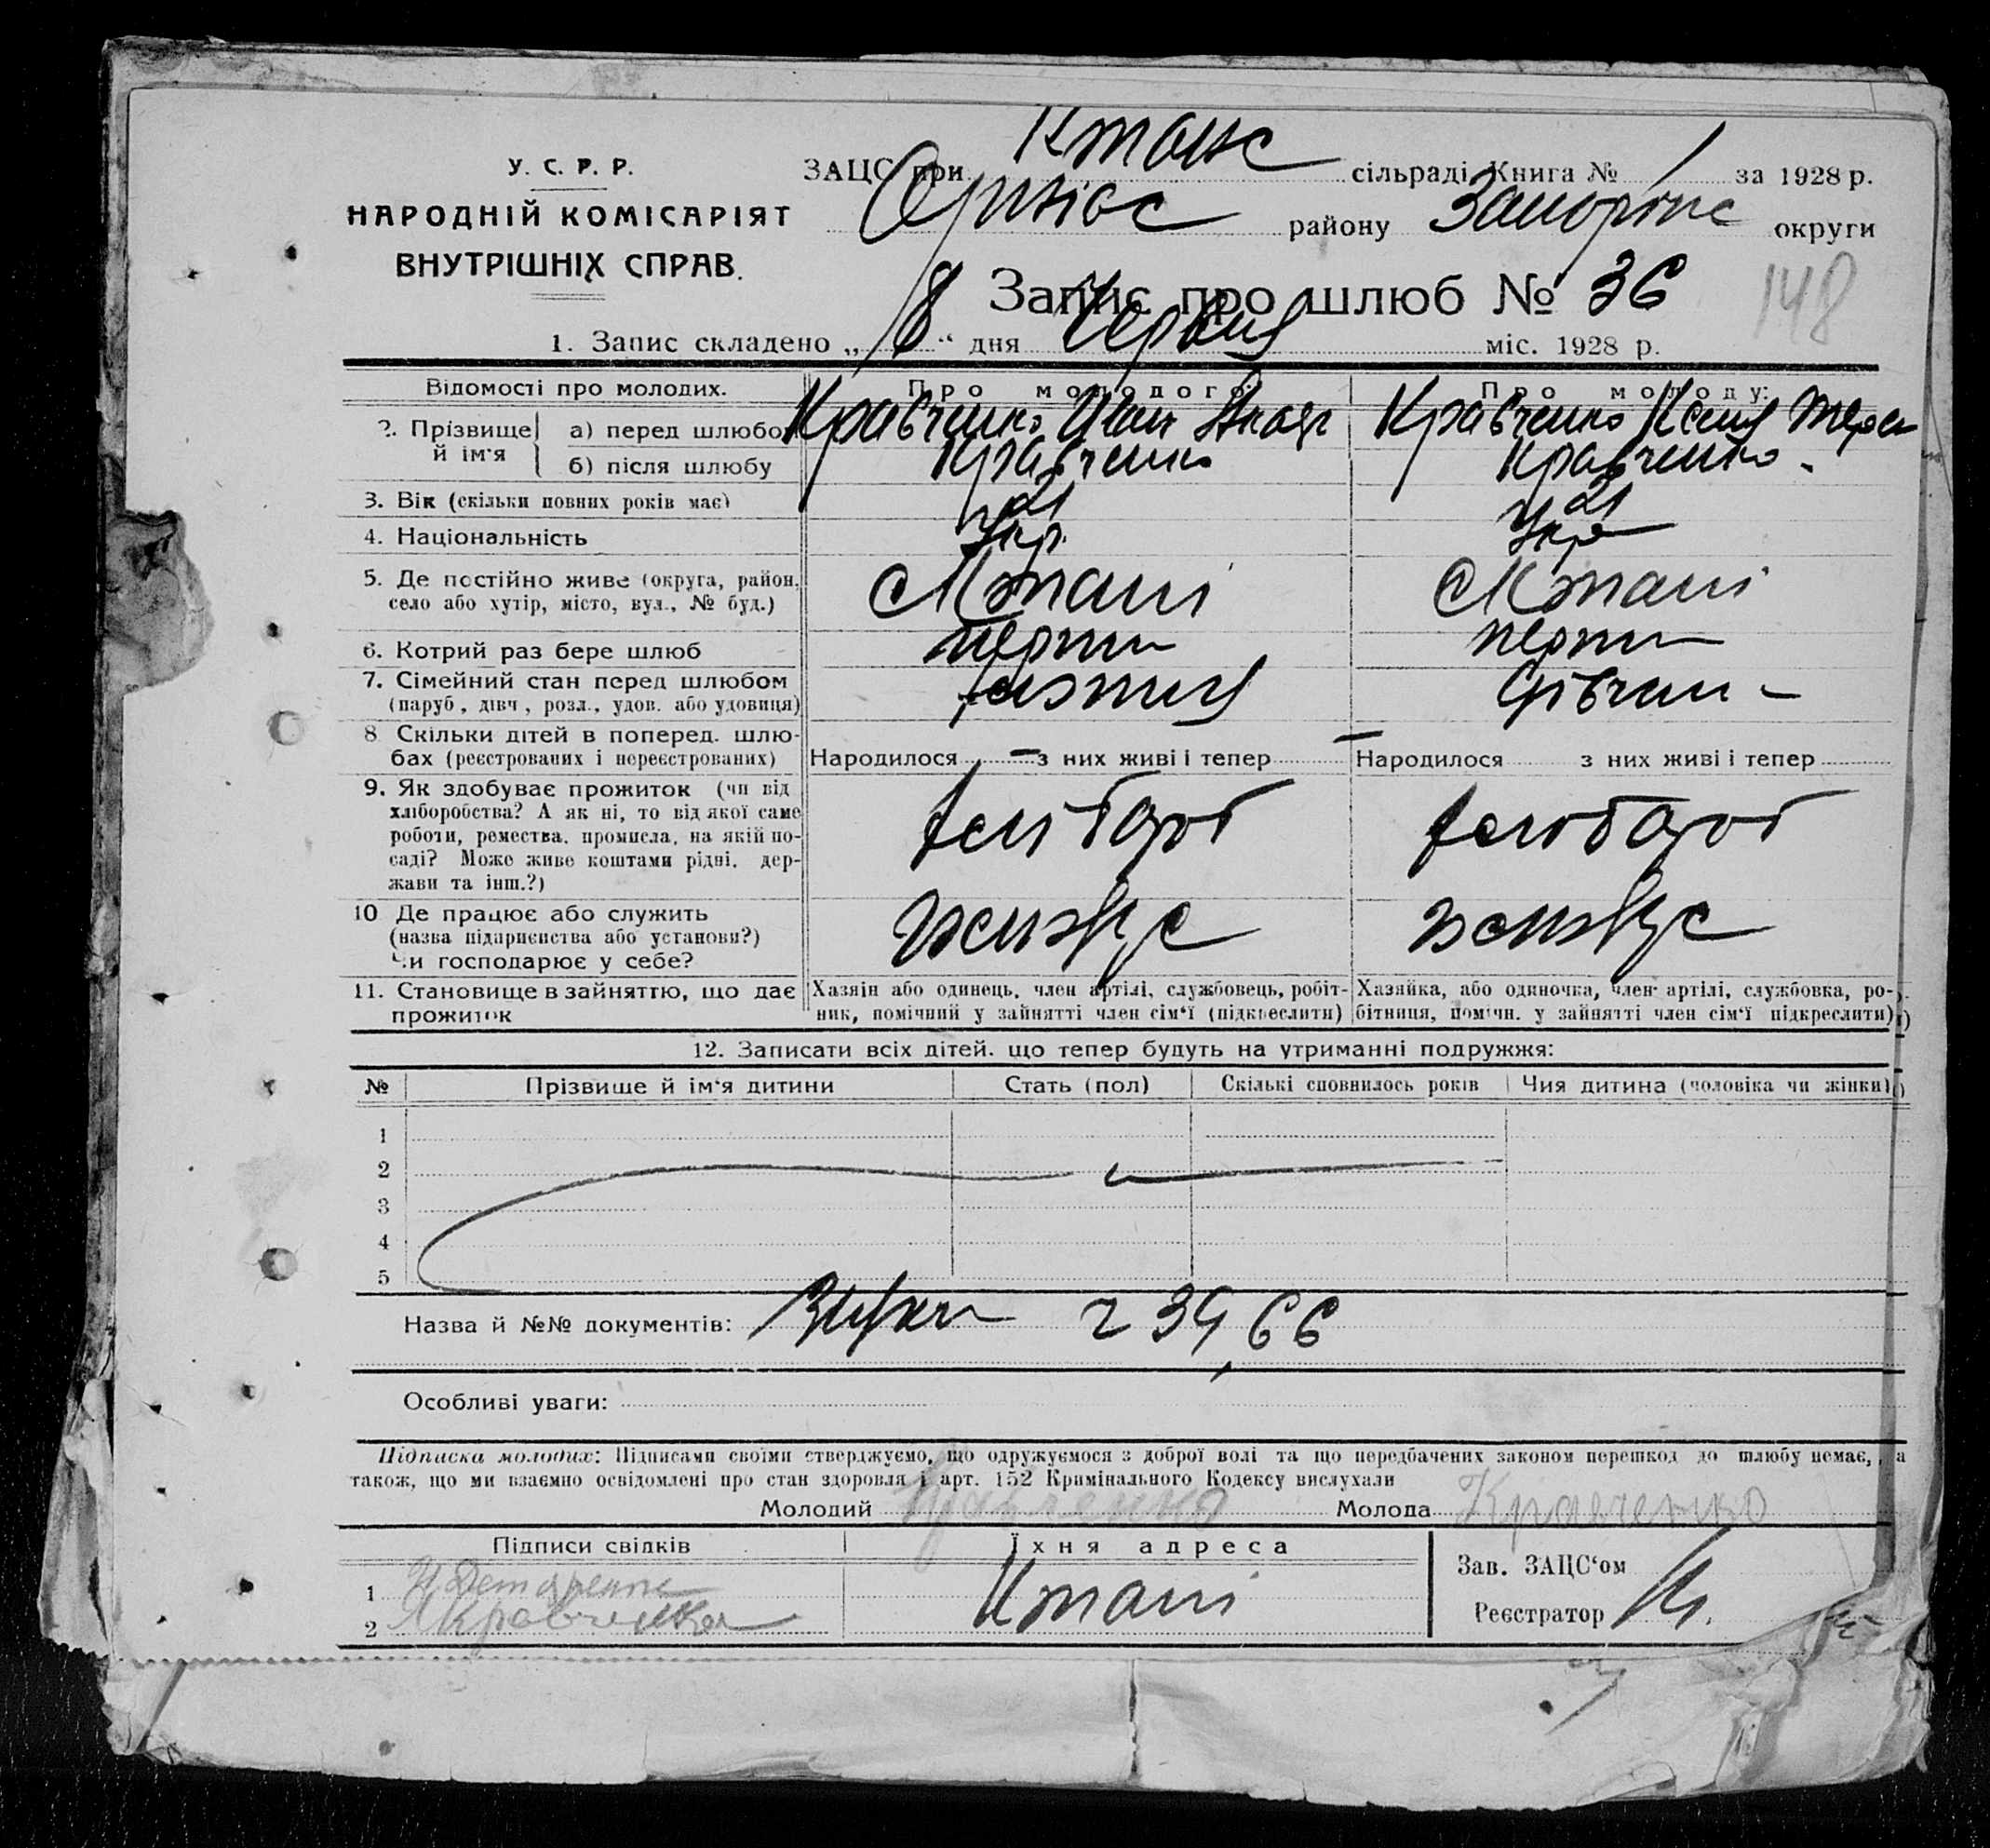 У. С. Р. Р.
НАРОДНІЙ КОМІСАРІЯТ
ВНУТРІШНІХ СПРАВ.
ЗАЦС при сільраді Книга № 1 за 1928 р.
району округи
Запис про шлюб № 36
148
1. Запис складено „ 8 “ дня Червня міс. 1928 р.
Відомості про молодих. Про молодого: Про молоду:
2. Прізвище й ім'я
а) перед шлюбом Кравченко Иван Кравченко
б) після шлюбу Кравченко Кравченко
3. Вік (скільки повних років має) 21 21
4. Національність Укр. Укр
5. Де постійно живе (округа, район,
село або хутір, місто, вул., № буд.)
6. Котрий раз бере шлюб перши перши
7. Сімейний стан перед шлюбом
(паруб, дівч, розл., удов. або удовиця)
8 Скільки дітей в поперед. шлю-
бах (реєстрованих і нереєстрованих)
Народилося — з них живі і тепер Народилося з них живі і тепер
9. Як здобуває прожиток (чи від
хліборобства? А як ні, то від якої саме
роботи, ремества, промисла, на якій по-
саді? Може живе коштами рідні, дер-
жави та інш.?)
хлібороб хлібороб
10 Де працює або служить
(назва підприємства або установи?)
Чи господарює у себе?
11. Становище в зайняттю, що дає
прожиток
Хазяін або одинець, член артілі, службовець, робіт-
ник, помічний у зайнятті член сім'ї (підкреслити)
Хазяйка, або одиночка, член артілі, службовка, ро-
бітниця, помічн. у зайнятті член сім'ї підкреслити)
12. Записати всіх дітей, що тепер будуть на утриманні подружжя:
№ Прізвище й ім'я дитини Стать (пол) Скількі сповнилось років Чия дитина (чоловіка чи жінки)
1
2
3
4
5
Назва й №№ документів: 39, 66
Особливі уваги:
Підписка молодих: Підписами своїми стверджуємо, що одружуємося з доброї волі та що передбачених законом перешкод до шлюбу немає, а
також, що ми взаємно освідомлені про стан здоровля і арт. 152 Кримінального Кодексу вислухали
Молодий Кравченко Молода Кравченко
Підписи свідків Їхня адреса
1
2 Кравченко
Зав. ЗАЦС'ом
Реєстратор